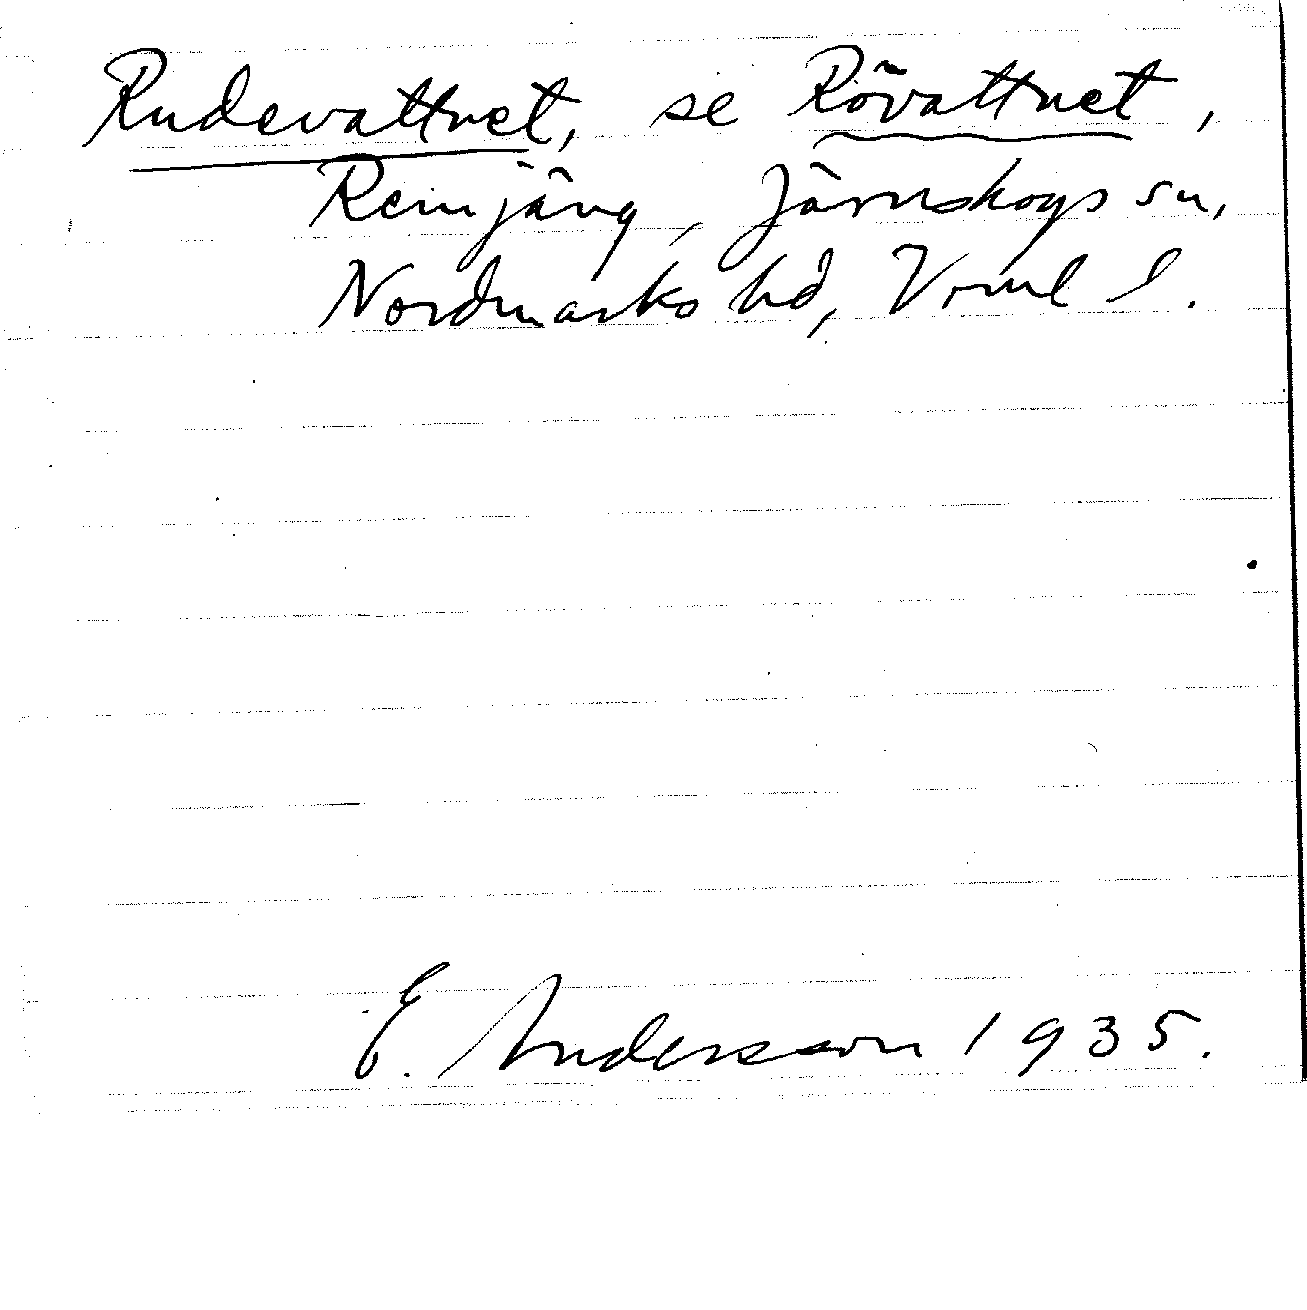 Rudevattnet, se Rövattnet,
Remjäng, Järnskogs sn,
Nordmarks hd, Vrml l.
E. Andersson 1935.